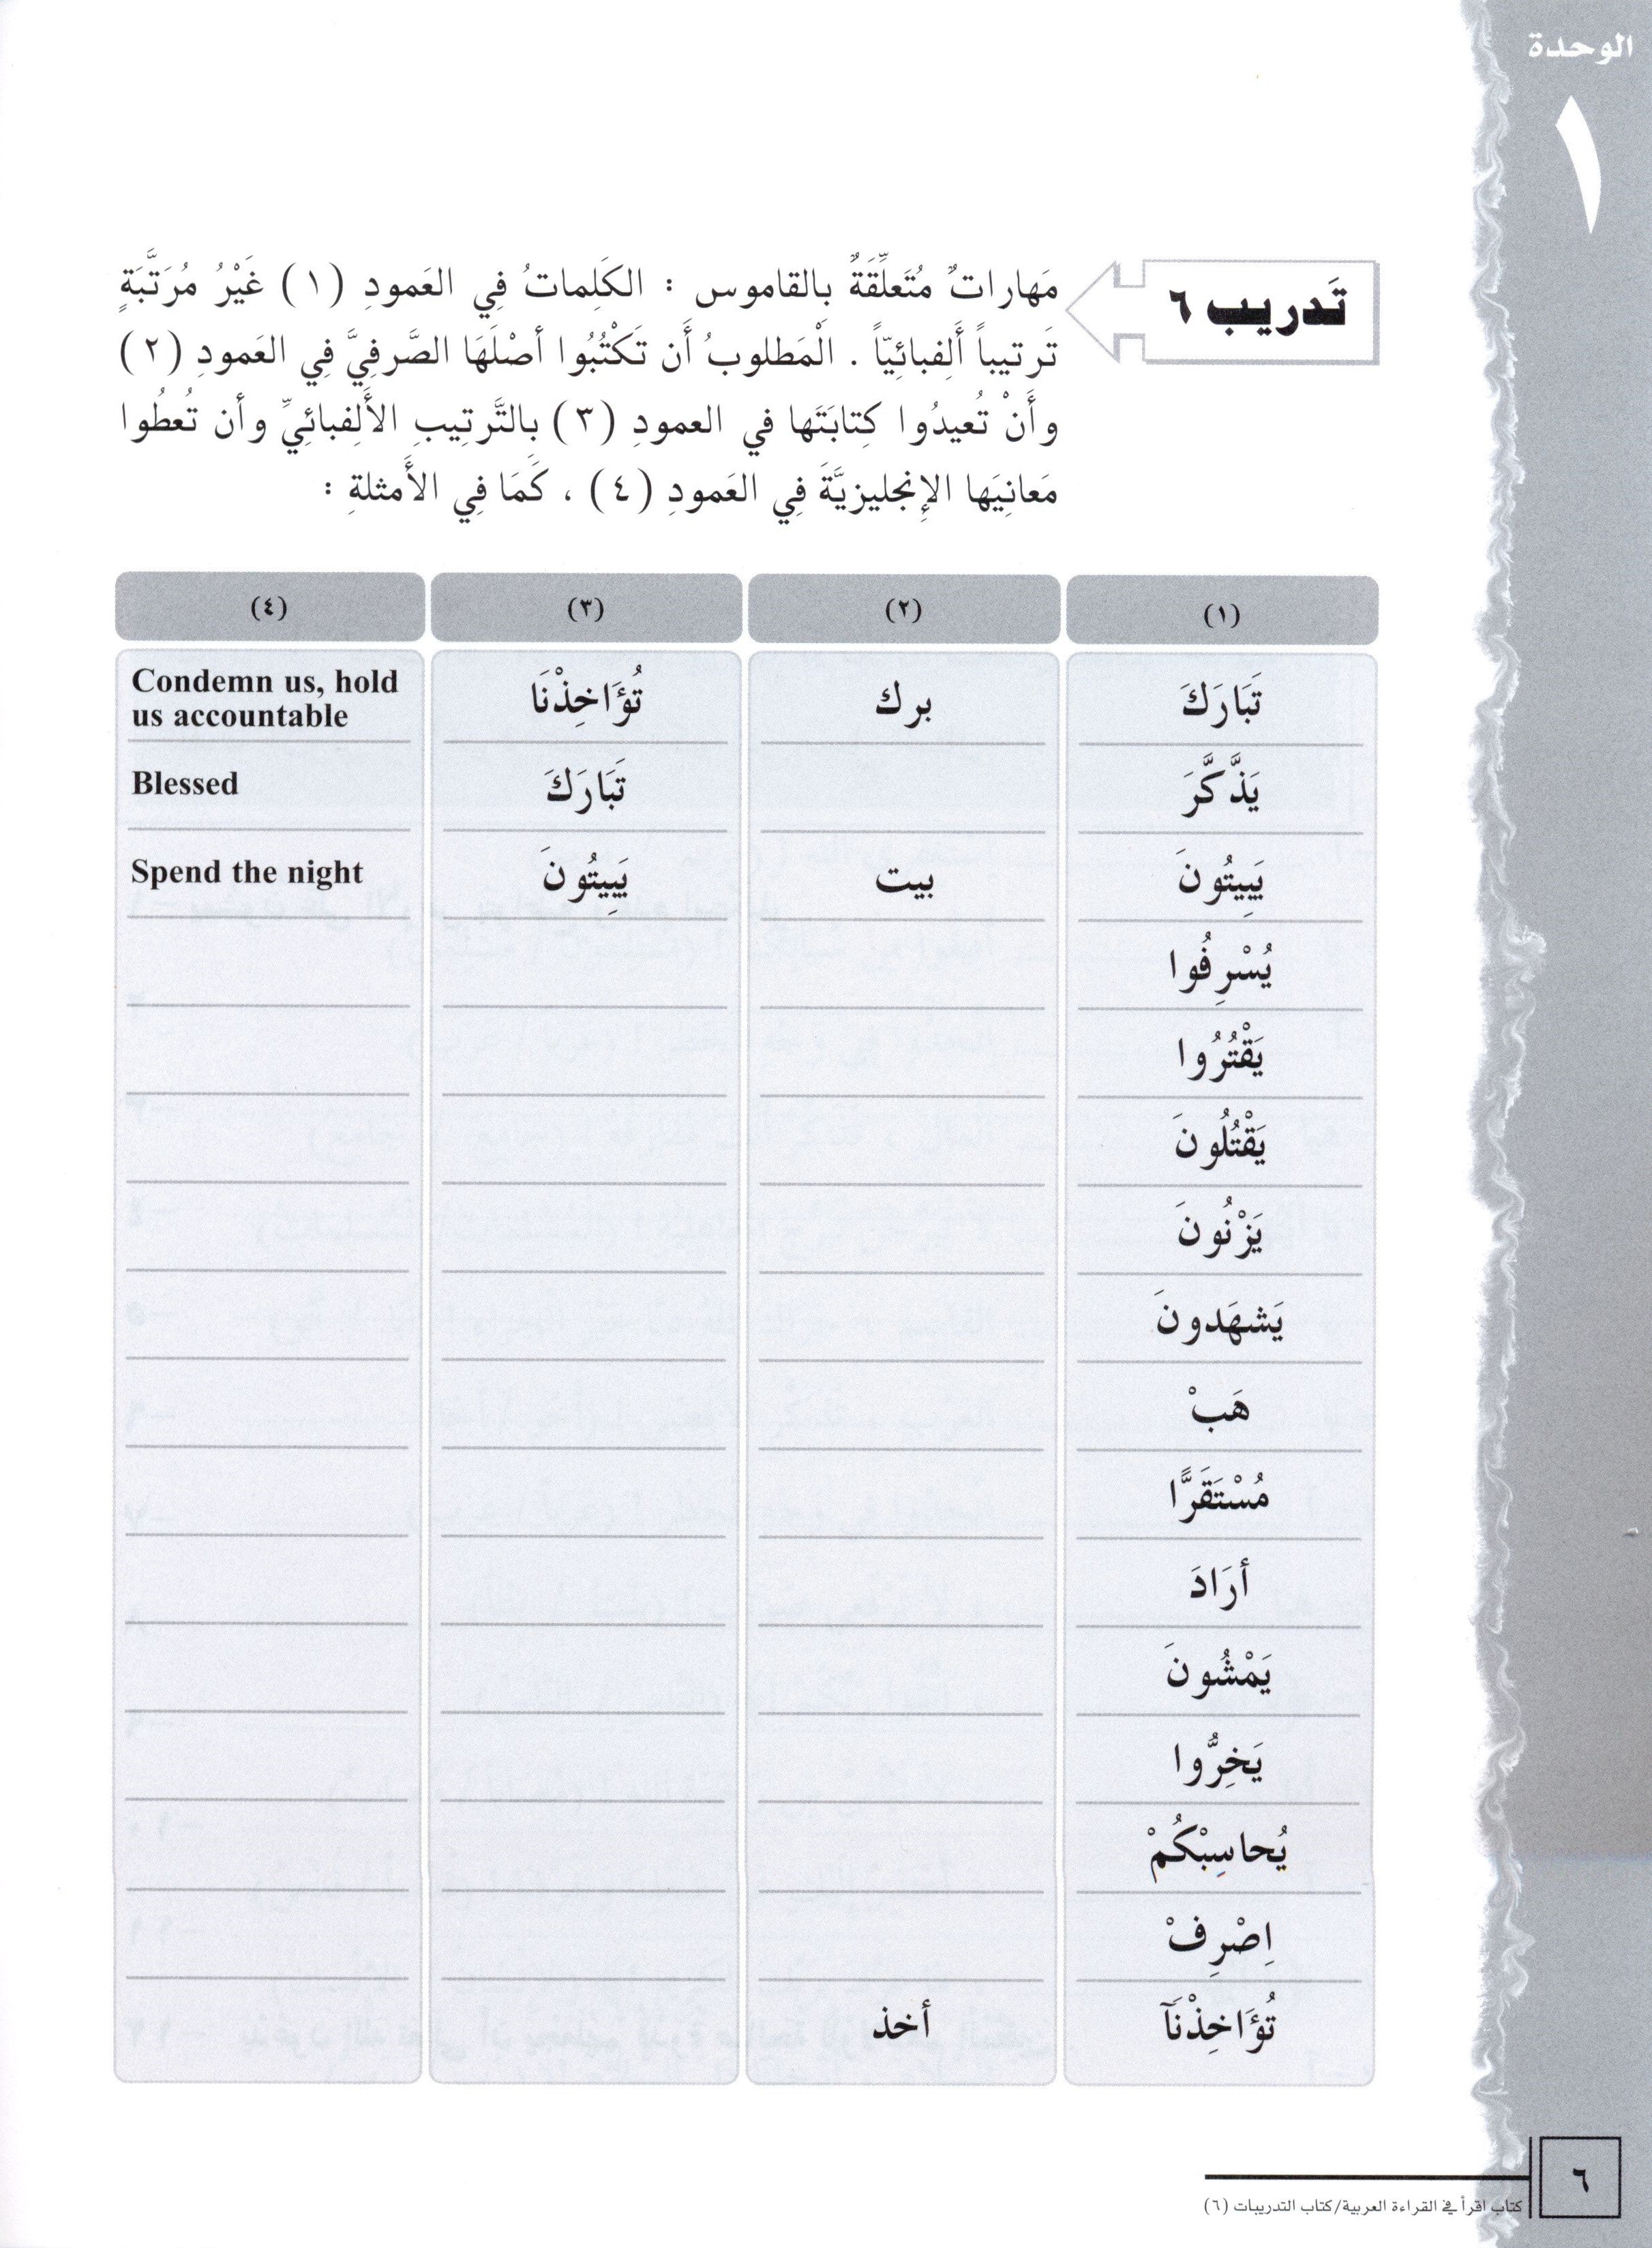 الوحدة
١
تَدريب ٦
مَهاراتٌ مُتَعلِّقَةٌ بِالقاموس : الكَلِماتُ فِي العَمودِ (١) غَيْرُ مُرَتَّبَةٍ
تَرتيباً أَلِفبائِيّاً . الْمَطلوبُ أَن تَكْتُبُوا أصْلَهَا الصَّرفِيَّ فِي العَمودِ (٢)
وأَنْ تُعيدُوا كِتابَتَها في العمودِ (٣) بالتَّرتِيبِ الأَلِفبائِيِّ وأن تُعطُوا
مَعانِيَها الإِنجليزيَّةَ فِي العَمودِ (٤) ، كَمَا فِي الأَمثلةِ :
(١) (٢) (٣) (٤)
تَبَارَكَ برك تُؤَاخِذْنَا Condemn us, hold
us accountable
يَذَّكَّرَ تَبَارَكَ Blessed
يَبِيتُونَ بيت يَبِيتُونَ Spend the night
يُسْرِفُوا
يَقْتُرُوا
يَقْتُلُونَ
يَزْنُونَ
يَشهَدونَ
هَبْ
مُسْتَقَرًّا
أرَادَ
يَمْشُونَ
يَخِرُّوا
يُحاسِبْكُمْ
اِصْرِفْ
تُؤَاخِذْنَآ أخذ
كتاب اقرأ في القراءة العربية/كتاب التدريبات (٦)
٦